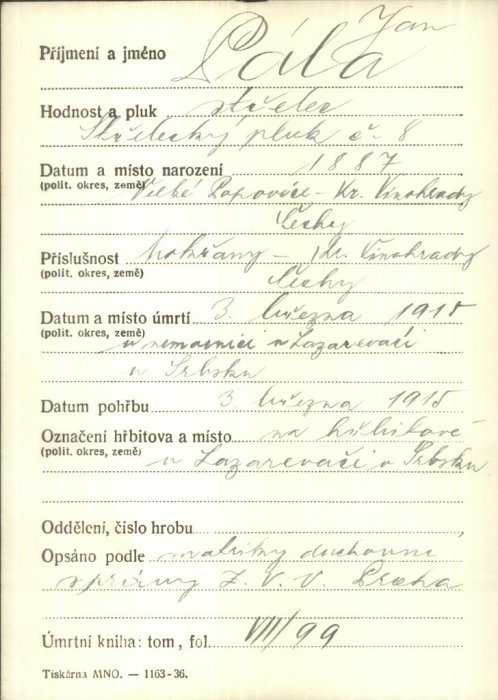 Příjmení a jméno Pála Jan
Hodnost a pluk střelec
Střelecký pluk č. 8
Datum a místo narození 1887
(polit. okres, země) Velké Popovice - Kr. Vinohrady
Čechy
Příslušnost Mokřany - Kr. Vinohrady
(polit. okres, země) Čechy
Datum a místo úmrtí 3. března 1915
(polit. okres, země) v nemocnici v Lazarevači
v Srbsku
Datum pohřbu 3 března 1915
Označení hřbitova a místo na hřbitově
(polit. okres, země) v Lazarevači v Srbsku
Oddělení, číslo hrobu
Opsáno podle matriky duchovní
správy Z. V. V. Praha
Úmrtní kniha: tom, fol. VIII/99
Tiskárna MNO. — 1163-36.